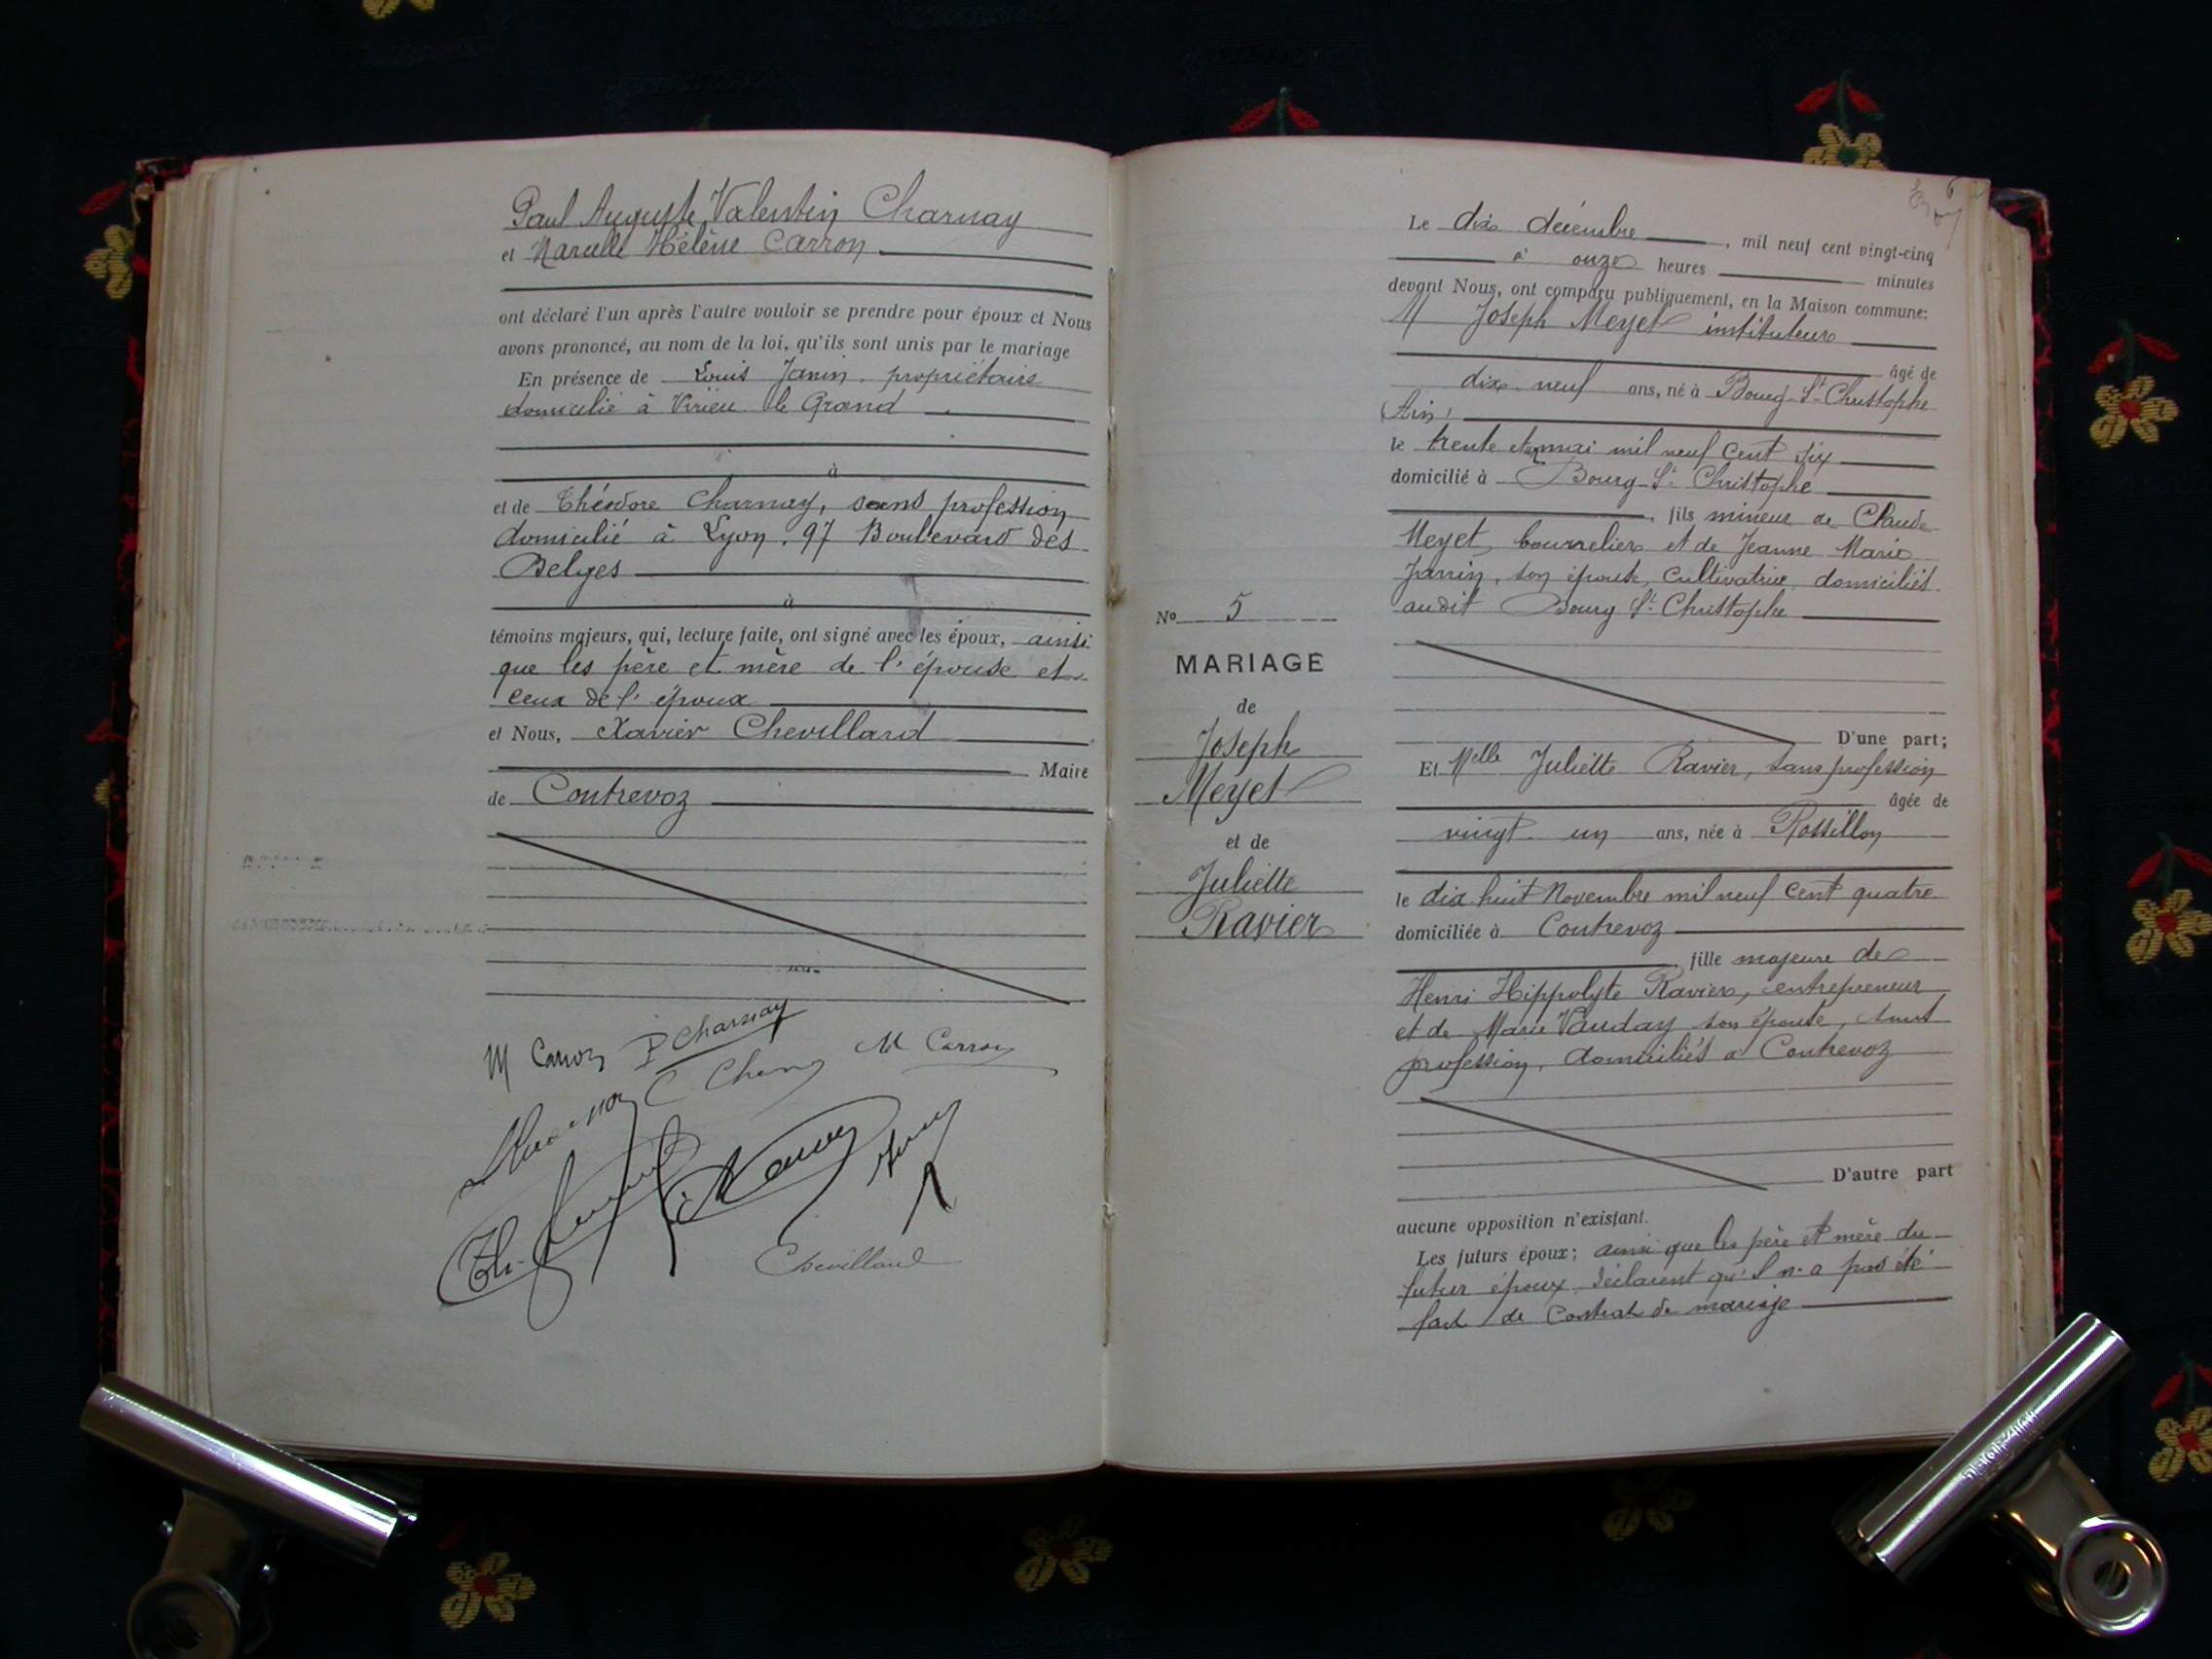 Paul Auguste Valentin Charnay
et Marcelle Hélène Carron
ont déclaré l'un après l'autre vouloir se prendre pour époux et Nous
avons prononcé, au nom de la loi, qu'ils sont unis par le mariage
En présence de Louis Janin propriétaire
domicilié à Virieu le Grand
à
et de Théodore Charnay, sans profession
domicilié à Lyon, 97 Boulevard des
Belges
à
témoins majeurs, qui, lecture faite, ont signé avec les époux, ainsi
que les père et mère de l'épouse et
ceux de l'époux
et Nous, Xavier Chevillard
Maire
de Contrevoz
M Carron P Charnay
M Carron
Chevillard
Le dix décembre, mil neuf cent vingt-cinq
à onze heures minutes
devant Nous, ont comparu publiquement, en la Maison commune:
M Joseph Meyet instituteur
âgé de
dix neuf ans, né à Bourg-St-Christophe
(Ain)
le trente et un mai mil neuf cent six
domicilié à Bourg-St-Christophe
, fils mineur de Claude
Meyet, bourrelier et de Jeanne Marie
Janin, son épouse, cultivatrice, domiciliés
audit Bourg St-Christophe
D'une part;
Et Melle Juliette Ravier, sans profession
âgée de
vingt un ans, née à Rossillon
le dix huit Novembre mil neuf cent quatre
domiciliée à Contrevoz
, fille majeure de
Henri Hippolyte Ravier, entrepreneur
et de Marie Vauday son épouse, sans
profession, domiciliés à Contrevoz
D'autre part
aucune opposition n'existant.
Les futurs époux; ainsi que les père et mère du
futur époux déclarent qu'il n'a pas été
fait de contrat de mariage
No 5
MARIAGE
de
Joseph
Meyet
et de
Juliette
Ravier